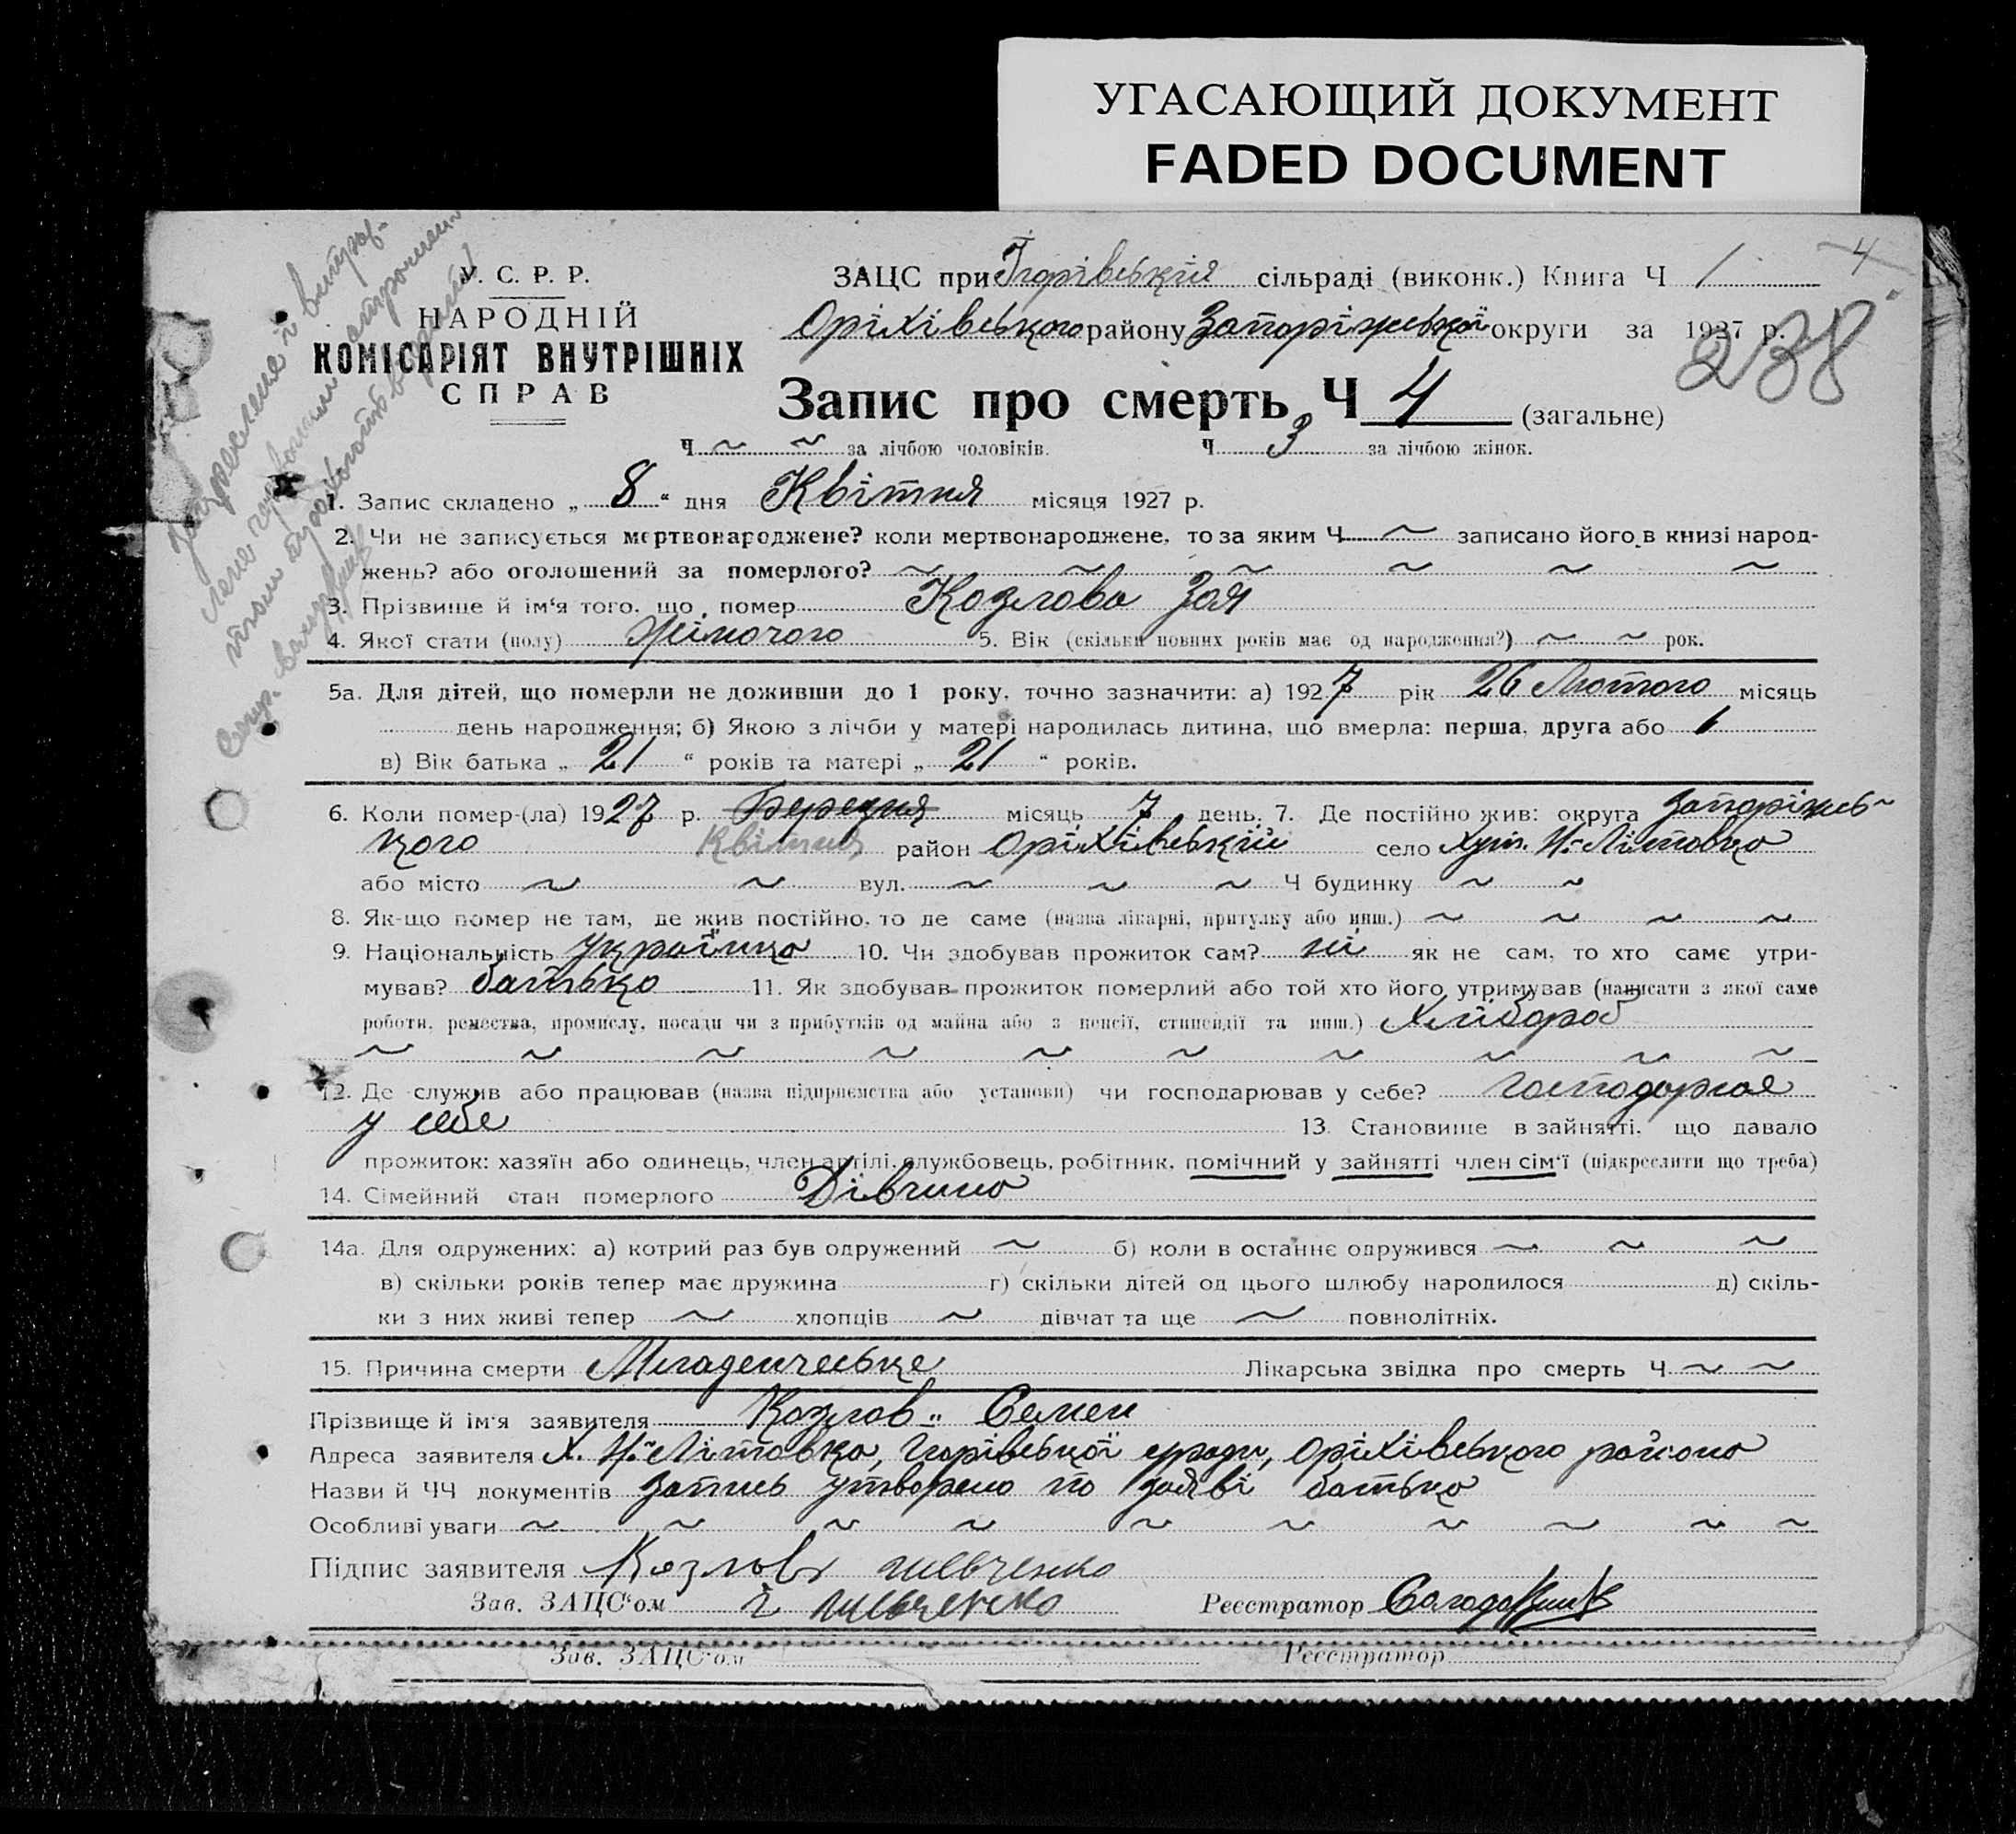 УГАСАЮЩИЙ ДОКУМЕНТ
FADED DOCUMENT
У. С. Р. Р.
НАРОДНІЙ
КОМІСАРІЯТ ВНУТРІШНІХ
СПРАВ
ЗАЦС при Ігорівській сільраді (виконк.) Книга Ч 1
4
Оріхівського району Запоріжської округи за 1927 р.
238
Запис про смерть Ч 4 (загальне)
Ч ~ ~ за лічбою чоловіків. Ч 3 за лічбою жінок.
1. Запис складено „ 8 “ дня Квітня місяця 1927 р.
2. Чи не записується мертвонароджене? коли мертвонароджене, то за яким Ч ~ записано його в книзі народ-
жень? або оголошений за померлого? ~ ~ ~ ~ ~ ~
3. Прізвише й ім‘я того, що помер Козлова Зоя
4. Якої стати (полу) Жіночого 5. Вік (скільки повних років має од народження?) ~ ~ рок.
5а. Для дітей, що померли не доживши до 1 року, точно зазначити: а) 1927 рік 26 Лютого місяць
день народження; б) Якою з лічби у матері народилась дитина, що вмерла: перша, друга або 1
в) Вік батька „ 21 “ років та матері „ 21 “ років.
6. Коли помер-(ла) 1927 р. Березня місяць 7 день. 7. Де постійно жив: округа Запоріжсь-
кого Квітня район Оріхівський село Хут. Н-Літовка
або місто ~ ~ вул. ~ ~ ~ Ч будинку ~ ~
8. Як-що помер не там, де жив постійно, то де саме (назва лікарні, притулку або инш.) ~ ~ ~ ~
9. Національність Українка 10. Чи здобував прожиток сам? ні як не сам, то хто саме утри-
мував? батько 11. Як здобував прожиток померлий або той хто його утримував (написати з якої саме
роботи, ремества, промислу, посади чи з прибутків од майна або з пенсії, стипендії та инш.) Хлібороб
~ ~ ~ ~ ~ ~ ~ ~ ~ ~
12. Де служив або працював (назва підприємства або установи) чи господарював у себе? господарює
у себе 13. Становише в зайнятті, що давало
прожиток: хазяїн або одинець, член артілі, службовець, робітник, помічний у зайнятті член сім‘ї (підкреслити що треба)
14. Сімейний стан померлого Дівчина
14а. Для одружених: а) котрий раз був одружений ~ б) коли в останнє одружився ~ ~ ~
в) скільки років тепер має дружина г) скільки дітей од цього шлюбу народилося д) скіль-
ки з них живі тепер ~ хлопців ~ дівчат та ще ~ повнолітніх.
15. Причина смерти Младенческе Лікарська звідка про смерть Ч ~ ~
Прізвище й ім‘я заявителя Козлов Семен
Адреса заявителя Х. Н-Літовка, Ігорівської с/ради, Оріхівського района
Назви й ЧЧ документів запись утворено по заяві батька
Особливі уваги ~ ~ ~ ~ ~ ~ ~ ~ ~ ~
Підпис заявителя Козлов Шевченко
Зав. ЗАЦС‘ом Шевченко Реєстратор
Зав. ЗАЦС‘ом Реєстратор